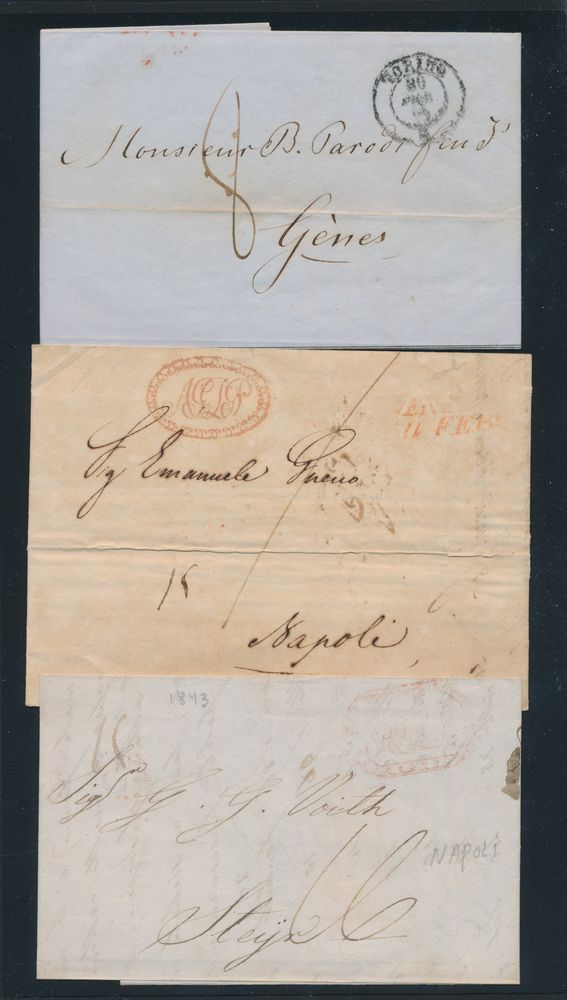 TORINO
20
8
Monsieur B. Parodi feu J.
Gènes
AGDP
FEB
Sig Emanuele
15
Napoli
1843
Sigr G. G. Voith
NAPOLI
Steÿr